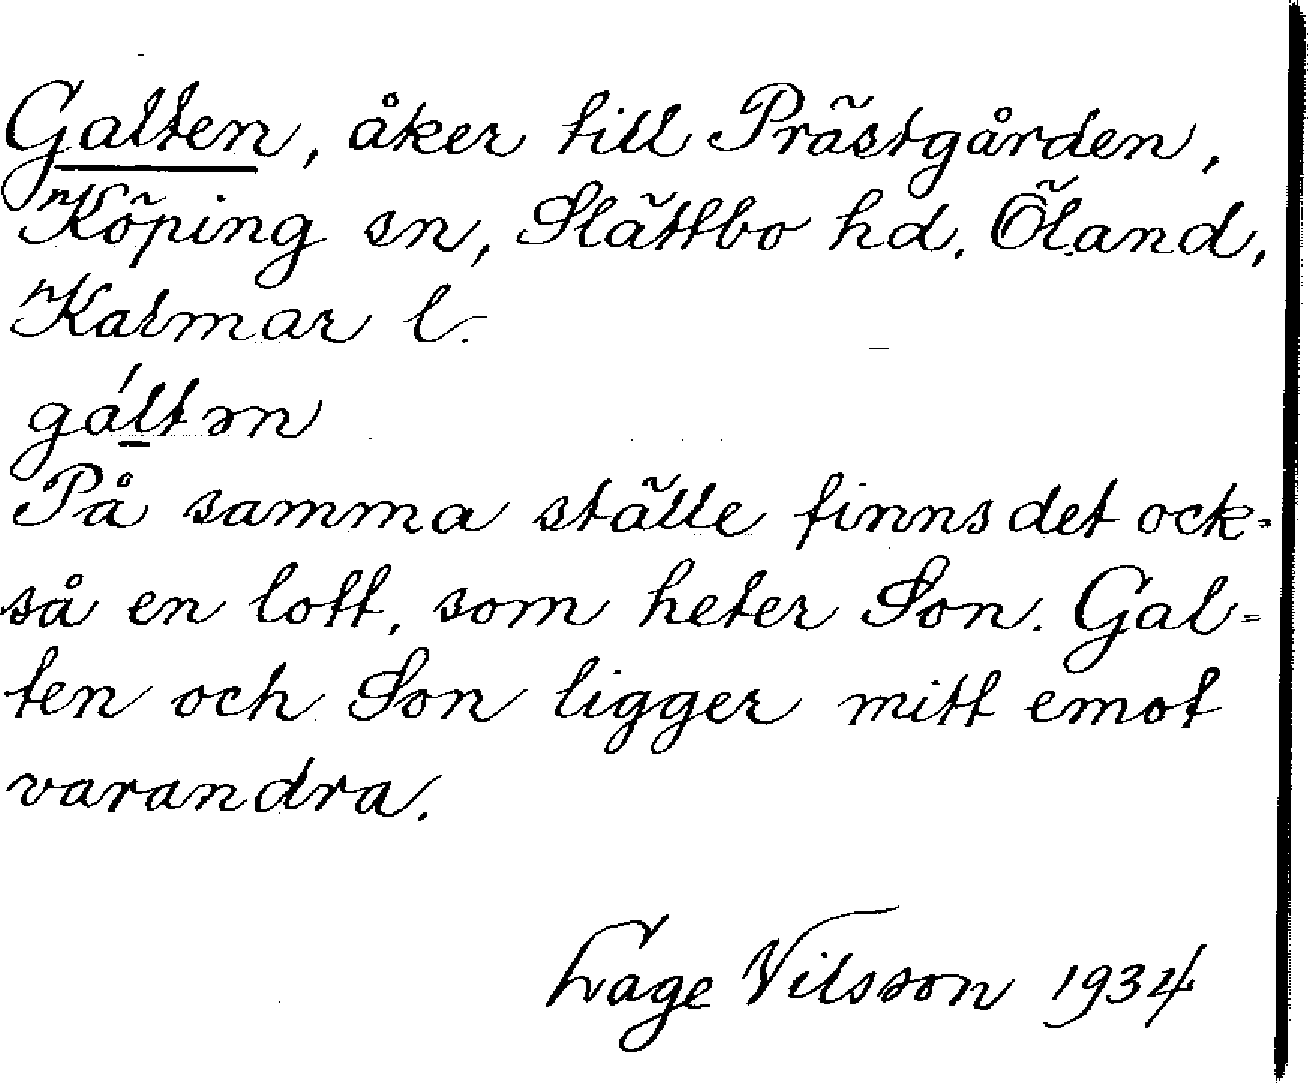 Galten, åker till Prästgården,
Köping sn, Slättbo hd. Öland,
Kalmar l.
gáltən
På samma ställe finns det ock-
så en lott, som heter Son. Gal-
ten och Son ligger mitt emot
varandra.
Lage Nilsson 1934